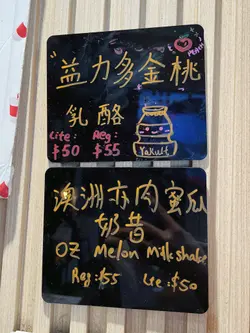 PEACH
"益力多金桃
乳酪
Lite: Reg:
$50 $55
Yakult
澳洲赤肉蜜瓜
奶昔
OZ Melon Milkshake
Reg:$55 Lte:$50